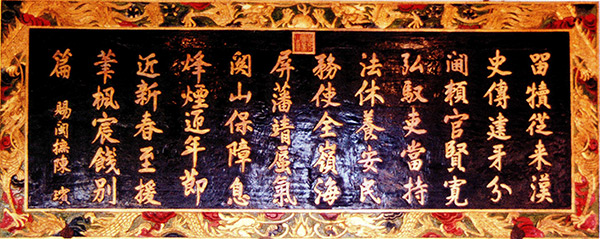 畱犢從来漢
史傳建牙分
閫頼官賢寛
弘馭吏當持
法休養安民
務使全嶺海
屏藩靖蜃氣
関山保障息
烽煙迎年節
近新春至援
筆楓宸餞別
篇
賜閩撫陳璸